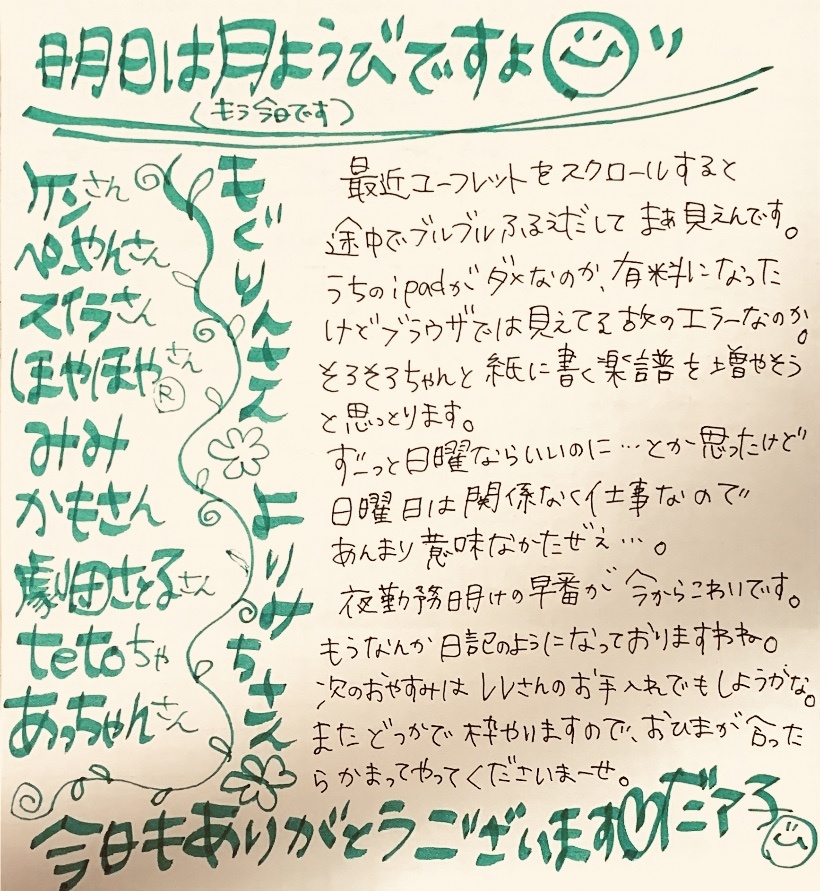 明日は月ようびですよ
(もう今日です)
ケンさん
ぺーやんさん
スイラさん
ほやほやさん
R
みみ
かもさん
劇団さとるさん
tetoちゃ
あっちゃんさん
もぐりんさん
よりみちさん
最近ユーフレットをスクロールすると
途中でブルブルふるえだして まぁ見えんです。
うちのipadがダメなのか、有料になった
けどブラウザでは見えてる故のエラーなのか。
そろそろちゃんと紙に書く楽譜を増やそう
と思っとります。
ずーっと日曜ならいいのに…とか思ったけど
日曜日は関係なく仕事なので
あんまり意味なかたぜぇ…。
夜勤務明けの早番が今からこわいです。
もうなんか日記のようになっておりますわね。
次のおやすみはレレさんのお手入れでもしようかな。
またどっかで枠やりますので、おひまが合った
らかまってやってくださいまーせ。
今日もありがとうございます♡だァ子